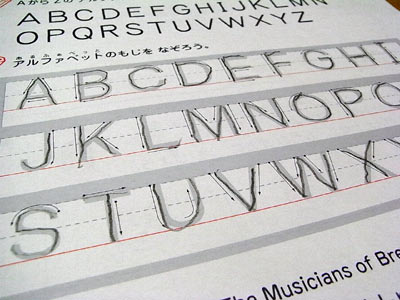 AからZの
ABCDEFGHIJKLMN
OPQRSTUVWXYZ
あるふぁべっと
アルファベットのもじを なぞろう。
ABCDEFGHI
JKLMNOPQ
STUVWXY
The Musicians of Bre